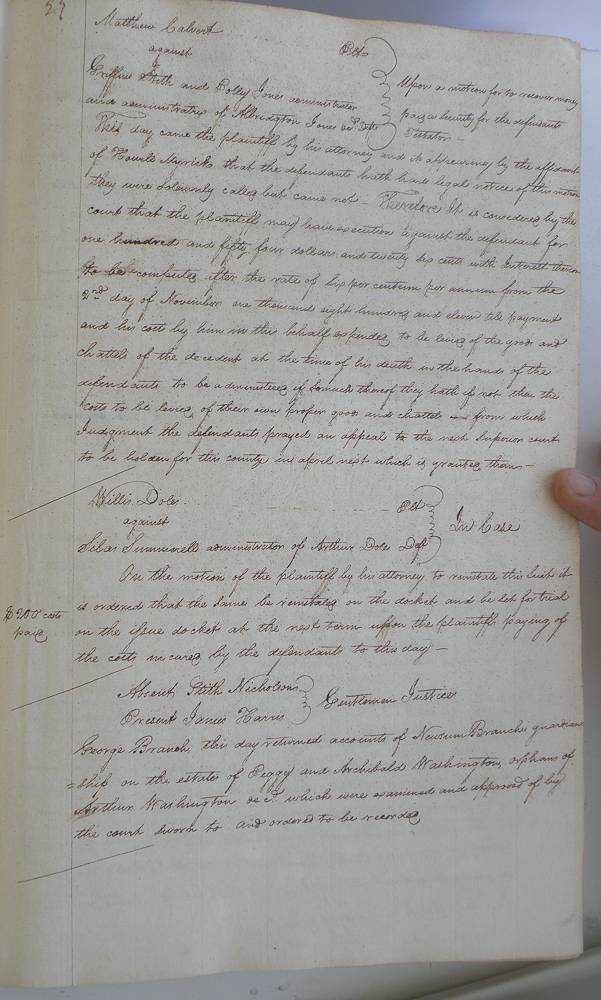 27
Matthew Calvert Plt
against
Griffin Stith and Polley Jones administrator
and administratrix of Albridgton Jones decd Defts
Upon a motion for to recover money
paid as Security for the defendants
Testator —
This day came the plaintiff by his attorney and it appearing by the affidavit
of Howell Myrick that the defendants hath had legal notice of this motion
they were solemnly called but came not — Therefore It is considered by the
court that the plaintiff may have execution against the defendant for
one hundred and fifty four dollars and twenty six cents with Interest thereon
to be computed after the rate of six per centum per annum from the
2nd day of November one thousand eight hundred and eleven till payment
and his costs by him in this behalf expended to be levied of the good and
chattels of the decedent at the time of his death in the hands of the
defendants to be administered if so much thereof they hath if not then the
costs to be levied of their own proper good and chattels — from which
Judgment the defendants prayed an appeal to the next Superior court
to be holden for this county in april next which is granted them —
Willis Doles Plt
against
Silas Summerell administrator of Arthur Doles Deft
In Case
On the motion of the plaintiff by his attorney to reinstate this Suit it
is ordered that the same be reinstated on the docket and be set for trial
on the issue docket at the next term upon the plaintiffs paying of
the costs incured by the defendants to this day —
costs
paid
Absent Stith Nicholson
Present James Harris
Gentlemen Justices
George Branch this day returned accounts of Newsum Branchs guardian
=ship on the estates of Peggy and Archibald Washington orphans of
Arthur Washington decd. which were examined and approved of by
the court sworn to and ordered to be recorded